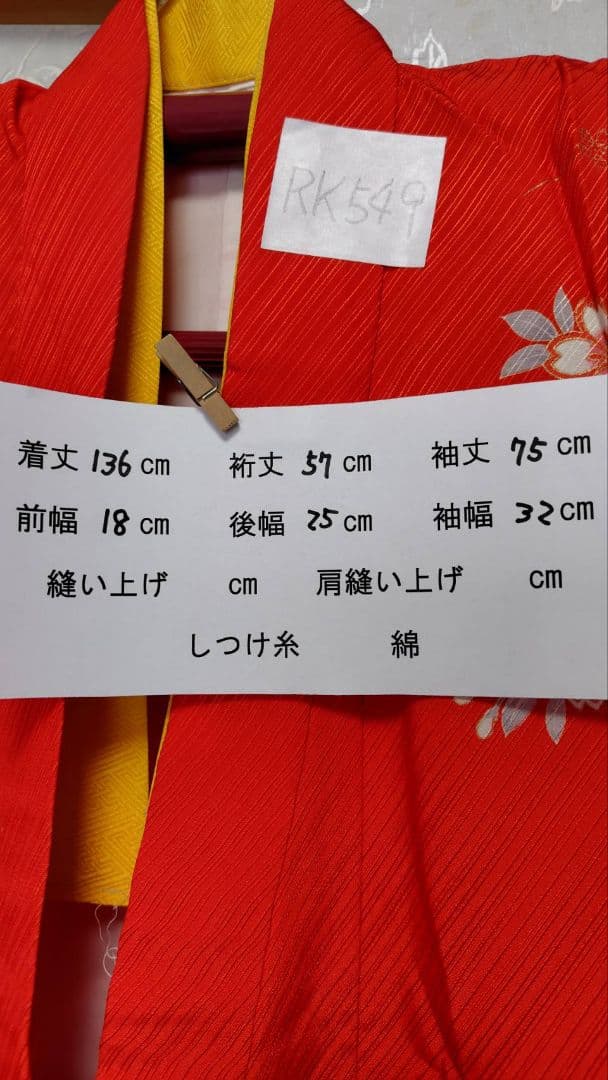 RK549
着丈 136 cm 裄丈 57 cm 袖丈 75 cm
前幅 18 cm 後幅 25 cm 袖幅 32 cm
縫い上げ cm 肩縫い上げ cm
しつけ糸 綿